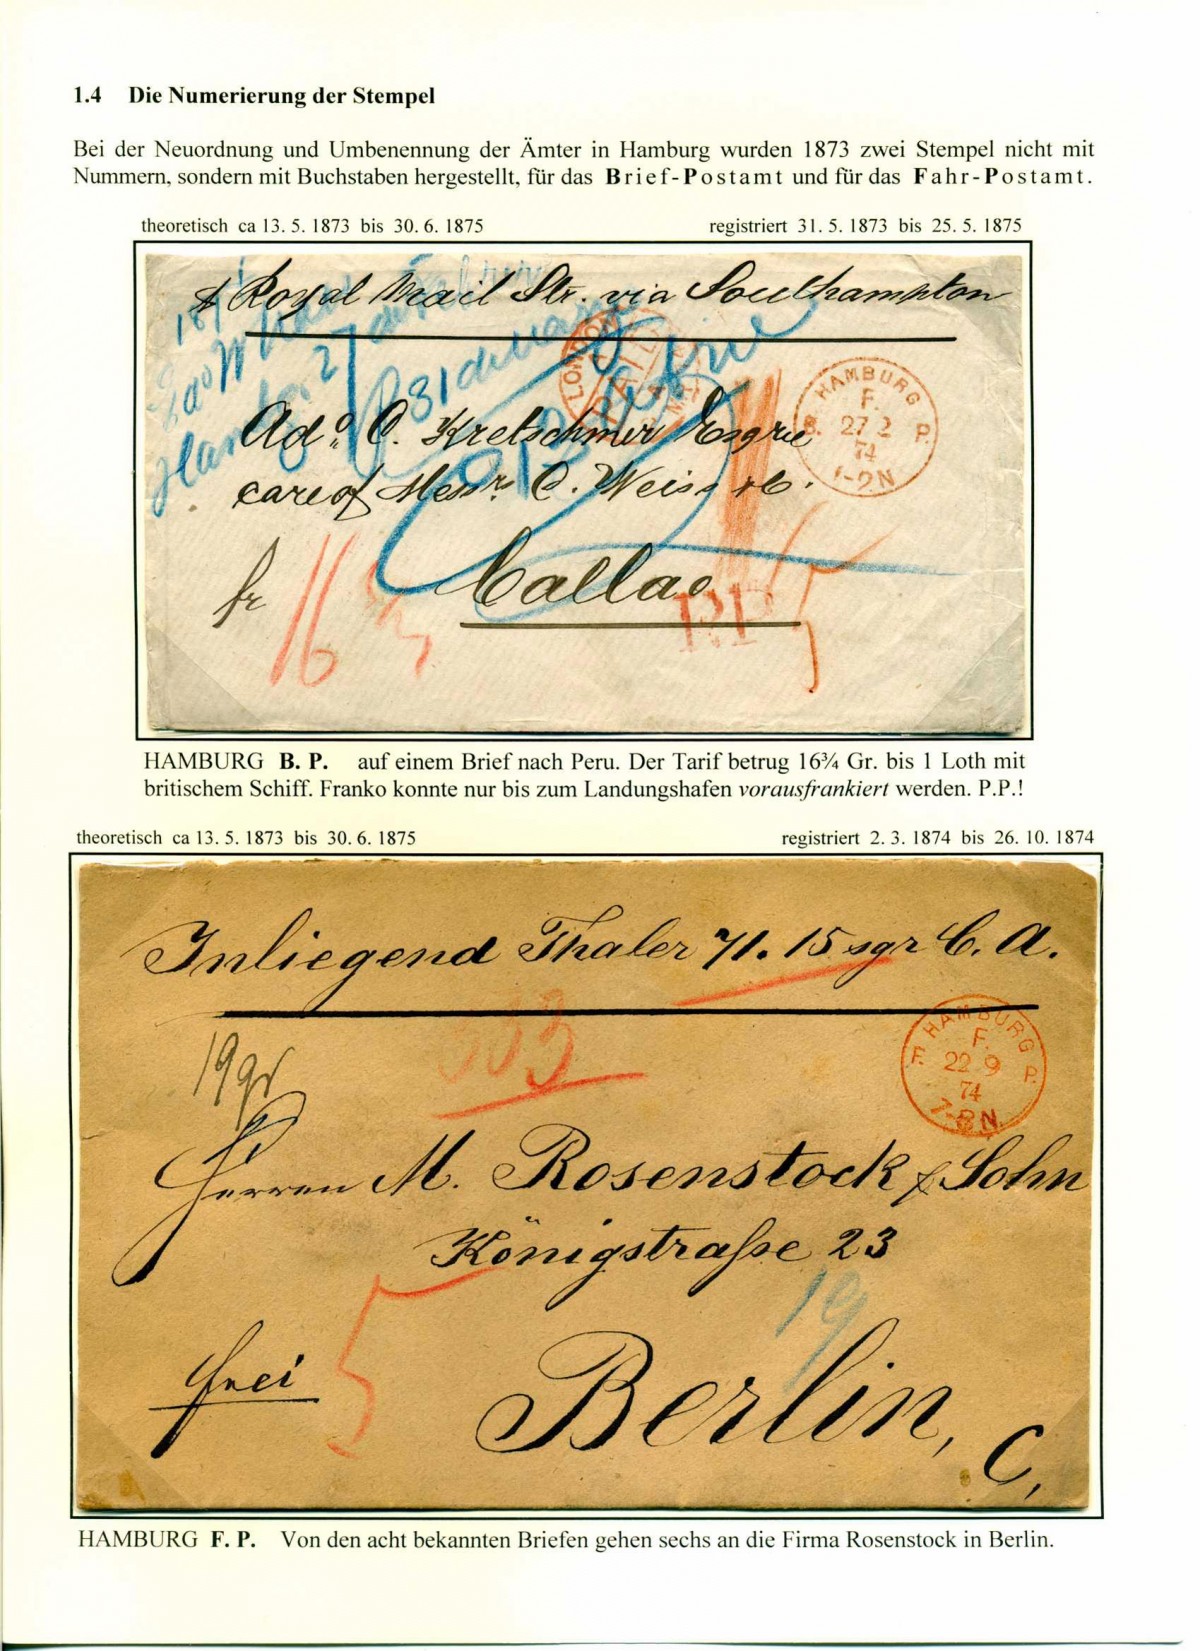 1.4 Die Numerierung der Stempel
Bei der Neuordnung und Umbenennung der Ämter in Hamburg wurden 1873 zwei Stempel nicht mit
Nummern, sondern mit Buchstaben hergestellt, für das Brief-Postamt und für das Fahr-Postamt.
theoretisch ca 13. 5. 1873 bis 30. 6. 1875
registriert 31. 5. 1873 bis 25. 5. 1875
Royal Mail Str. via Southampton
LONDON
PAID
HAMBURG
F.
B. 27 2 P.
74
1-2N
Ado. C. Kretschmer Esqre
care of Messrs C. Weiss &c.
Callao
fr
16
P.P.
HAMBURG B. P. auf einem Brief nach Peru. Der Tarif betrug 16¾ Gr. bis 1 Loth mit
britischem Schiff. Franko konnte nur bis zum Landungshafen vorausfrankiert werden. P.P.!
theoretisch ca 13. 5. 1873 bis 30. 6. 1875
registriert 2. 3. 1874 bis 26. 10. 1874
Inliegend Thaler 71. 15 sgr C. A.
HAMBURG
F.
F. 22 9 P.
74
7-8N
19gr
Herren M. Rosenstock & Sohn
Königstraße 23
19
5
frei
Berlin, C.
HAMBURG F. P. Von den acht bekannten Briefen gehen sechs an die Firma Rosenstock in Berlin.